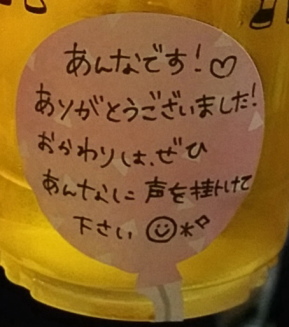 あんなです!♡
ありがとうございました!
おかわりは、ぜひ
あんなに声を掛けて
下さい☺*°